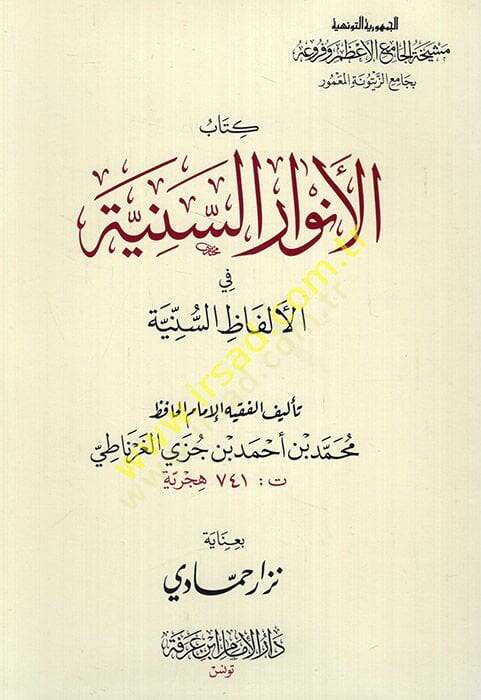 الجمهورية التونسية
مشيخة الجامع الأعظم وفروعه
بجامع الزيتونة المعمور
كِتَابُ
الأنوار السَّنِيَّة
فِي
الأَلفَاظِ السُّنِّيَّة
تأليف الفقيه الإمام الحافظ
مُحَمَّد بْن أَحْمَد بْن جُزَي الغَرْنَاطِيّ
ت: ٧٤١ هِجْرِيَّة
بِعِنَايَة
نزار حمّادي
دار الإمام ابن عرفة
تونس
www.irsad.com.tr